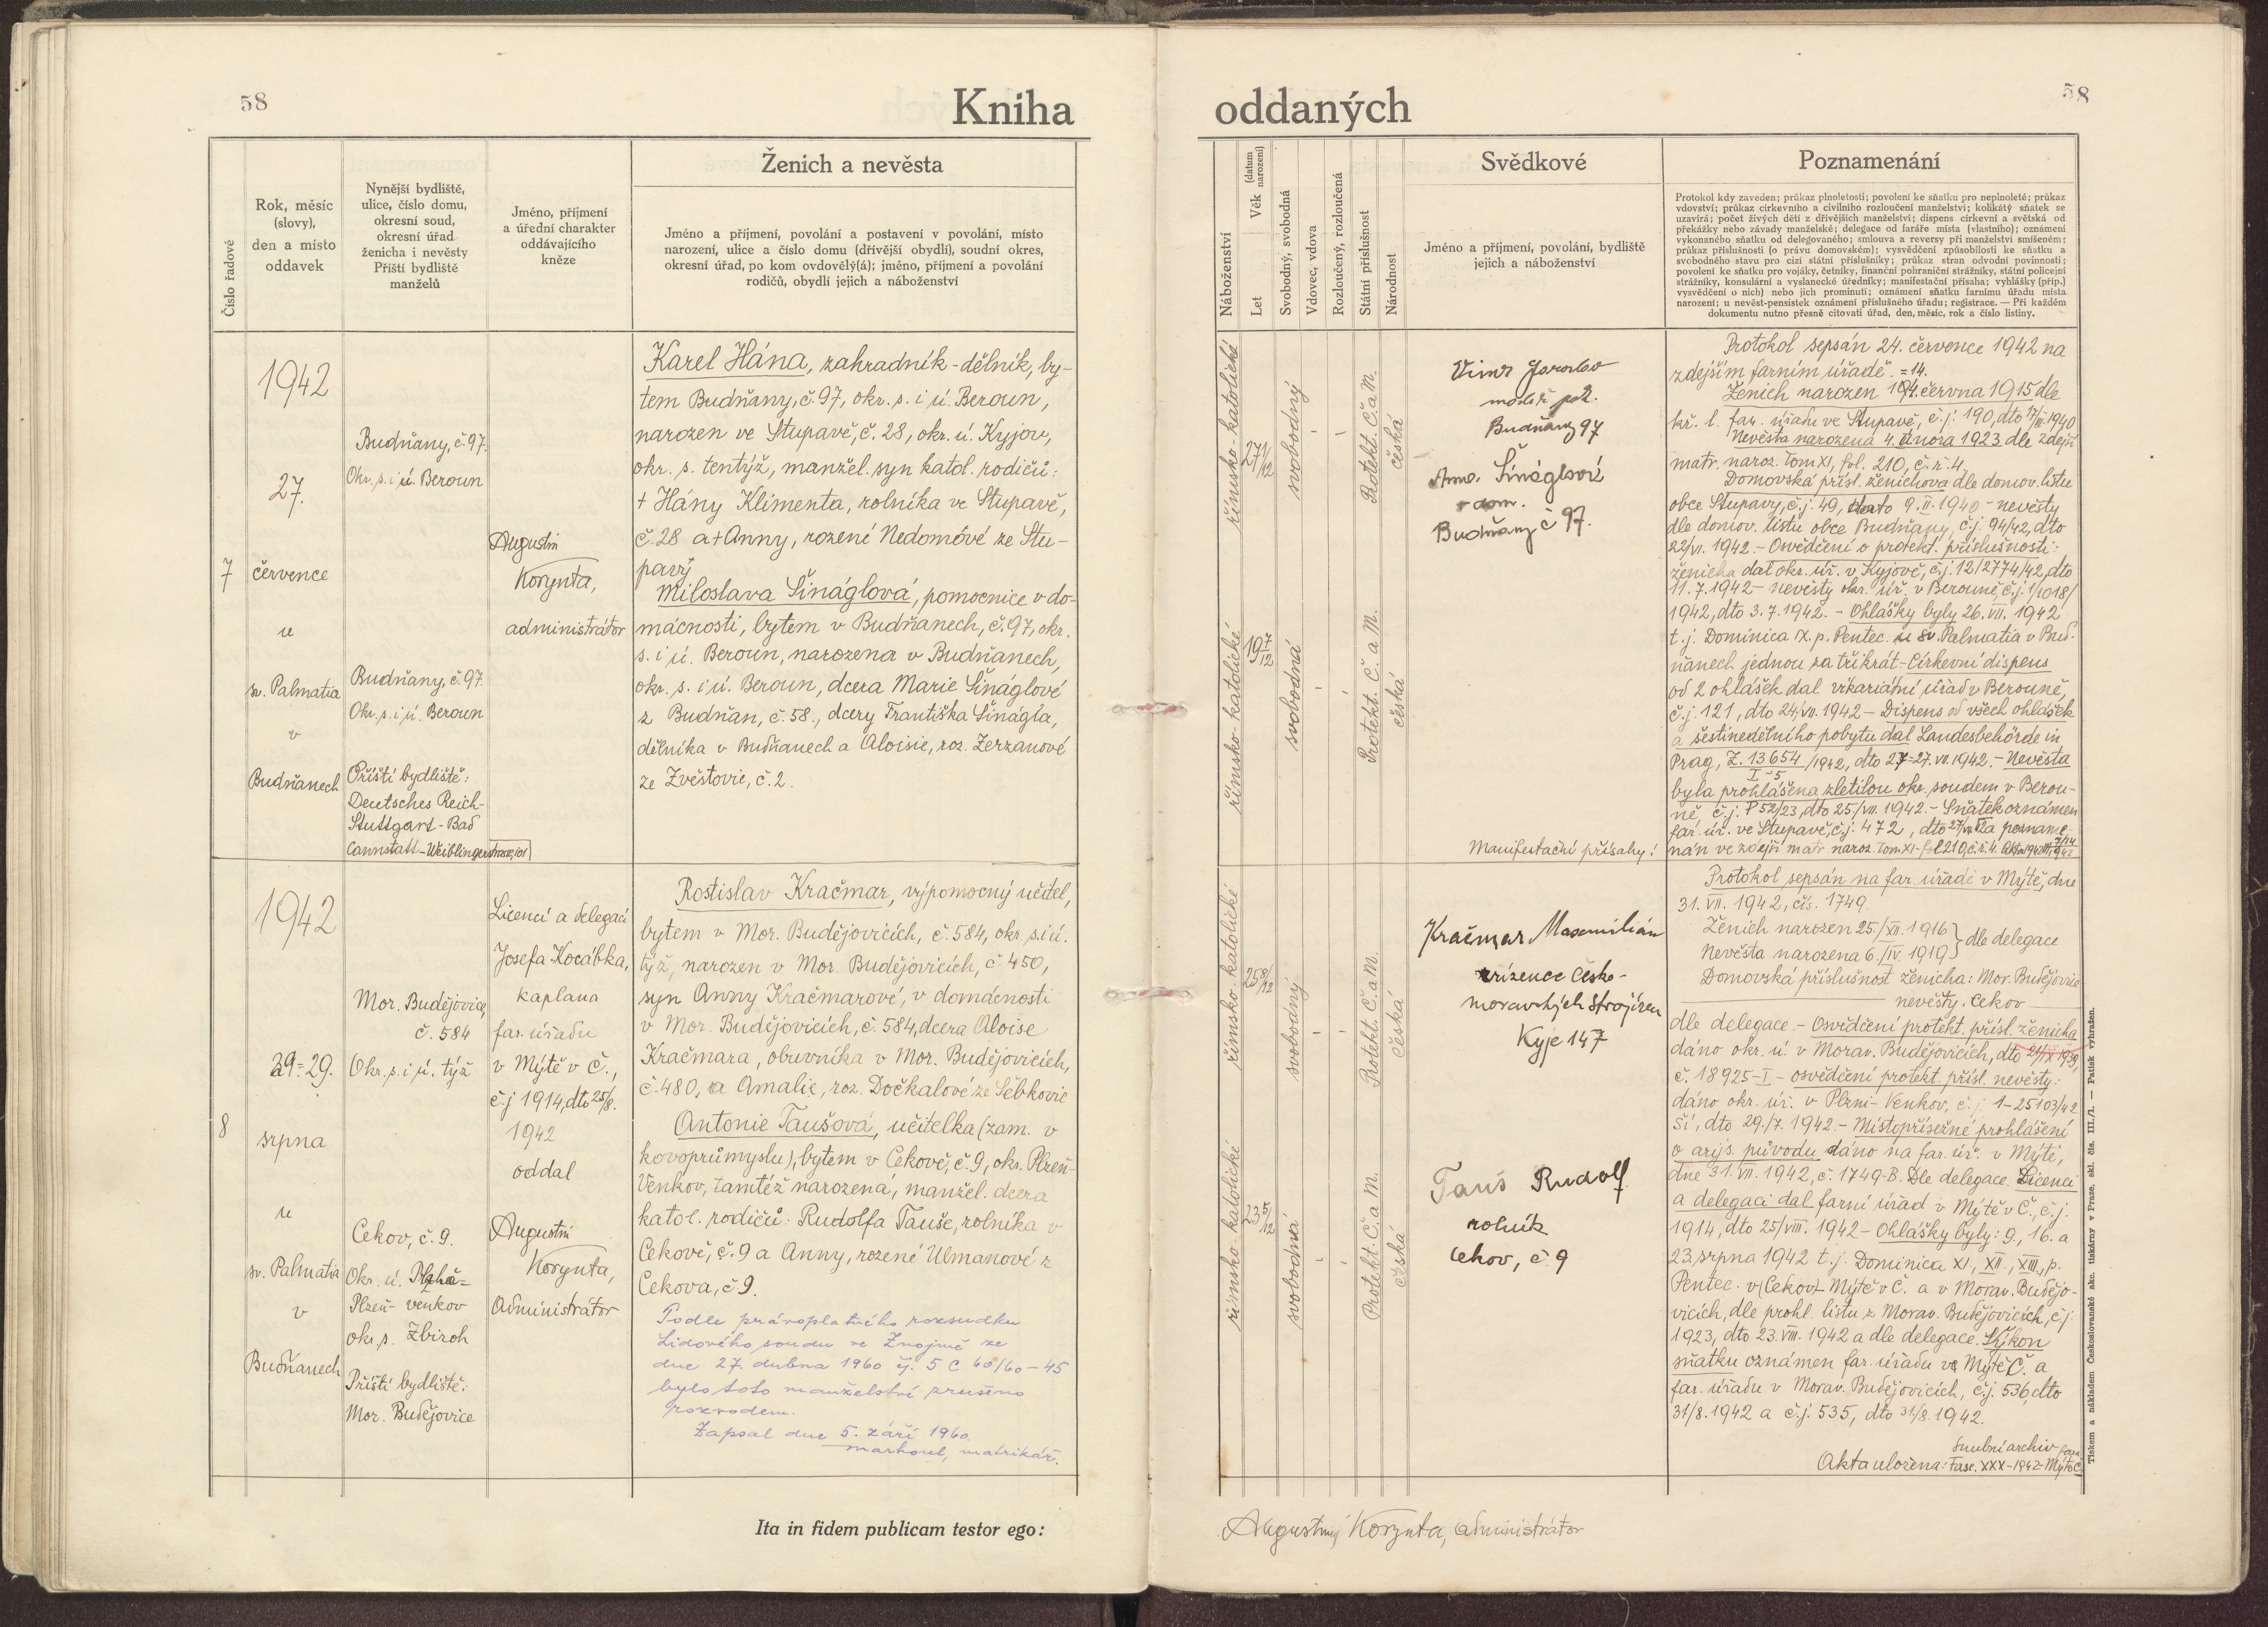 58
Kniha
Číslo řadové
Rok, měsíc
(slovy),
den a místo
oddavek
Nynější bydliště,
ulice, číslo domu,
okresní soud,
okresní úřad
ženicha i nevěsty
Příští bydliště
manželů
Jméno, příjmení
a úřední charakter
oddávajícího
kněze
Ženich a nevěsta
Jméno a příjmení, povolání a postavení v povolání, místo
narození, ulice a číslo domu (dřívější obydlí), soudní okres,
okresní úřad, po kom ovdovělý(á); jméno, příjmení a povolání
rodičů, obydlí jejich a náboženství
7
1942
27.
července
u
sv. Palmatia
v
Budňanech
Budňany, č. 97.
Okr. s. i ú. Beroun
Budňany, č. 97.
Okr. s. i ú. Beroun
Příští bydliště:
Deutsches Reich-
Stuttgart - Bad
Cannstatt - Weiblingerstrasse, 101
Augustin
Korynta,
administrátor
Karel Hána, zahradník - dělník, by-
tem Budňany, č. 97, okr. s. i ú. Beroun,
narozen ve Stupavě, č. 28, okr. ú. Kyjov,
okr. s. tentýž, manžel. syn katol. rodičů:
+ Hány Klimenta, rolníka ve Stupavě,
č. 28 a + Anny, rozené Nedomové ze Stu-
pavy
Miloslava Šináglová, pomocnice v do-
mácnosti, bytem v Budňanech, č. 97, okr.
s. i ú. Beroun, narozena v Budňanech,
okr. s. i ú. Beroun, dcera Marie Šináglové
z Budňan, č. 58., dcery Františka Šinágla,
dělníka v Budňanech a Aloisie, roz. Zerzanové
ze Zvěstovic, č. 2.
8
1942
29 = 29.
srpna
u
sv. Palmatia
v
Budňanech
Mor. Budějovice,
č. 584
Okr. s. i ú. týž
Cekov, č. 9.
Okr. ú.
Plzeň - venkov
okr. s. Zbiroh
Příští bydliště:
Mor. Budějovice
Licencí a delegací
Josefa Kocábka,
kaplana
far. úřadu
v Mýtě v Č.,
č. j. 1914, dto 25/8.
1942
oddal
Augustin
Korynta,
Administrátor
Rostislav Kračmar, výpomocný učitel,
bytem v Mor. Budějovicích, č. 584, okr. s. i ú.
týž, narozen v Mor. Budějovicích, č. 450,
syn Anny Kračmarové, v domácnosti
v Mor. Budějovicích, č. 584, dcera Aloise
Kračmara, obuvníka v Mor. Budějovicích,
č. 480, a Amalie, roz. Dočkalové ze Šebkovic
Antonie Taušová, učitelka (zam. v
kovoprůmyslu), bytem v Cekově, č. 9, okr. Plzeň-
Venkov, tamtéž narozená, manžel. dcera
katol. rodičů: Rudolfa Tauše, rolníka v
Cekově, č. 9 a Anny, rozené Ulmanové z
Cekova, č. 9.
Podle právoplatného rozsudku
Lidového soudu ve Znojmě ze
dne 27. dubna 1960 čj. 5 C 60/60 - 45
bylo toto manželství zrušeno
rozvodem.
Zapsal dne 5. září 1960.
Marhoul, matrikář.
Ita in fidem publicam testor ego:
58
oddaných
Náboženství
Let
Věk (datum narození)
Svobodný, svobodná
Vdovec, vdova
Rozloučený, rozloučená
Státní příslušnost
Národnost
Svědkové
Jméno a příjmení, povolání, bydliště
jejich a náboženství
Poznamenání
Protokol kdy zaveden; průkaz plnoletosti; povolení ke sňatku pro neplnoleté; průkaz
vdovství; průkaz církevního a civilního rozloučení manželství; kolikátý sňatek se
uzavírá; počet živých dětí z dřívějších manželství; dispens církevní a světská od
překážky nebo závady manželské; delegace od faráře místa (vlastního); oznámení
vykonaného sňatku od delegovaného; smlouva a reversy při manželství smíšeném;
průkaz příslušnosti (o právu domovském); vysvědčení způsobilosti ke sňatku a
svobodného stavu pro cizí státní příslušníky; průkaz stran odvodní povinnosti;
povolení ke sňatku pro vojáky, četníky, finanční pohraniční strážníky, státní policejní
strážníky, konsulární a vyslanecké úředníky; manifestační přísaha; vyhlášky (příp.)
vysvědčení o nich) nebo jich prominutí; oznámení sňatku farnímu úřadu místa
narození; u nevěst-pensistek oznámení příslušného úřadu; registrace. — Při každém
dokumentu nutno přesně citovati úřad, den, měsíc, rok a číslo listiny.
římsko-katolické
27 1/12
svobodný
Protekt. Č. a M.
česká
římsko-katolické
19 5/12
svobodná
Protekt. Č. a M.
česká
Jaroslav
Budňany 97
Anna Šináglová
dom.
Budňany č 97.
Manifestační přísahy!
Protokol sepsán 24. července 1942 na
zdejším farním úřadě. = 14.
Ženich narozen 14. června 1915 dle
kř. l. far. úřadu ve Stupavě, č. j. 190, dto 17/III. 1940
Nevěsta narozena 4. února 1923 dle zdejší
matr. naroz. Tom XI, fol. 210, č. ř. 4.
Domovská přísl. ženichova dle domov. listu
obce Stupavy, č. j. 49, dato 9. II. 1940 - nevěsty
dle domov. listu obce Budňany, č. j. 94/42, dto
22/VI. 1942. - Osvědčení o protekt. příslušnosti:
ženicha dal okr. úř. v Kyjově, č. j. 12/2774/42, dto
11. 7. 1942 - nevěsty okr. úř. v Berouně, č. j. 1/1018/
1942, dto 3. 7. 1942. - Ohlášky byly 26. VII. 1942
t. j. Dominica X. p. Pentec. u sv. Palmatia v Bud-
ňanech jednou za třikrát - Církevní dispens
od 2 ohlášek dal vikariátní úřad v Berouně,
č. j. 121, dto 24/VII. 1942 - Dispens od všech ohlášek
a šestinedělního pobytu dal Landesbehörde in
Prag, Z. 13654/1942, dto 27 = 27. VII. 1942. - Nevěsta
I - 5
byla prohlášena zletilou okr. soudem v Berou-
ně, č. j. P 52/23, dto 25/VII. 1942. - Sňatek oznámen
far. úř. ve Stupavě, č. j. 472, dto 27/VII. a pozname-
nán ve zdejší matr. naroz. Tom XI - fol. 210, č. ř. 4.
římsko-katolické
25 8/12
svobodný
Protekt. Č. a M.
česká
římsko-katolické
23 5/12
svobodná
Protekt. Č. a M.
česká
Kračmar Maxmilián
zřízenec Česko-
moravských strojíren
Kyje 147
Tauš Rudolf
rolník
Cekov, č. 9
Protokol sepsán na far. úřadě v Mýtě, dne
31. VII. 1942, čís. 1749.
Ženich narozen 25./XII. 1916
Nevěsta narozena 6./IV. 1919 } dle delegace
Domovská příslušnost ženicha: Mor. Budějovice
nevěsty. Cekov
dle delegace. - Osvědčení protekt. přísl. ženicha
dáno okr. ú. v Morav. Budějovicích, dto 21/IX 1939,
č. 18925-I - osvědčení protekt. přísl. nevěsty:
dáno okr. úř. v Plzni - Venkov, č. j. 1-25103/42
Ší, dto 29./7. 1942. - Místopřísežné prohlášení
o arijs. původu dáno na far. úř. v Mýtě,
dne 31. VII. 1942, č. 1749-B. Dle delegace. Licenci
a delegaci dal farní úřad v Mýtě v Č., č. j.
1914, dto 25/VIII. 1942 - Ohlášky byly: 9., 16. a
23. srpna 1942 t. j. Dominica XI., XII., XIII., p.
Pentec. v (Cekov) - Mýtě v Č. a v Morav. Budějo-
vicích, dle prohl. listu z Morav. Budějovicích, č. j.
1923, dto 23. VIII. 1942 a dle delegace. Výkon
sňatku oznámen far. úřadu v Mýtě Č. a
far. úřadu v Morav. Budějovicích, č. j. 536, dto
31/8. 1942 a č. j. 535, dto 31/8. 1942.
Snubní archiv
Akta uložena: Fasc. XXX - 1942 - Mýto Č.
Tiskem a nákladem Českoslovanské akc. tiskárny v Praze, skl. čís. III./1. — Patisk vyhražen.
Augustin Korynta, administrátor